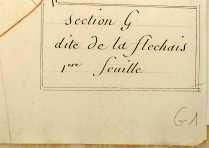 Section G
dite de la flechais
1ere feuille
G1